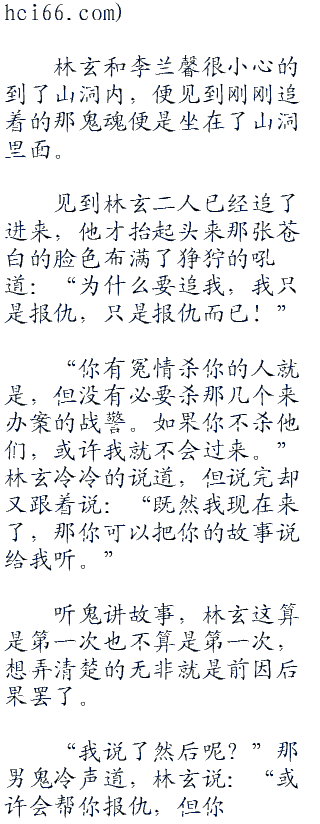 hci66.com)
林玄和李兰馨很小心的
到了山洞内，便见到刚刚追
着的那鬼魂便是坐在了山洞
里面。
见到林玄二人已经追了
进来，他才抬起头来那张苍
白的脸色布满了狰狞的吼
道：“为什么要追我，我只
是报仇，只是报仇而已！”
“你有冤情杀你的人就
是，但没有必要杀那几个来
办案的战警。如果你不杀他
们，或许我就不会过来。”
林玄冷冷的说道，但说完却
又跟着说：“既然我现在来
了，那你可以把你的故事说
给我听。”
听鬼讲故事，林玄这算
是第一次也不算是第一次，
想弄清楚的无非就是前因后
果罢了。
“我说了然后呢？”那
男鬼冷声道，林玄说：“或
许会帮你报仇，但你